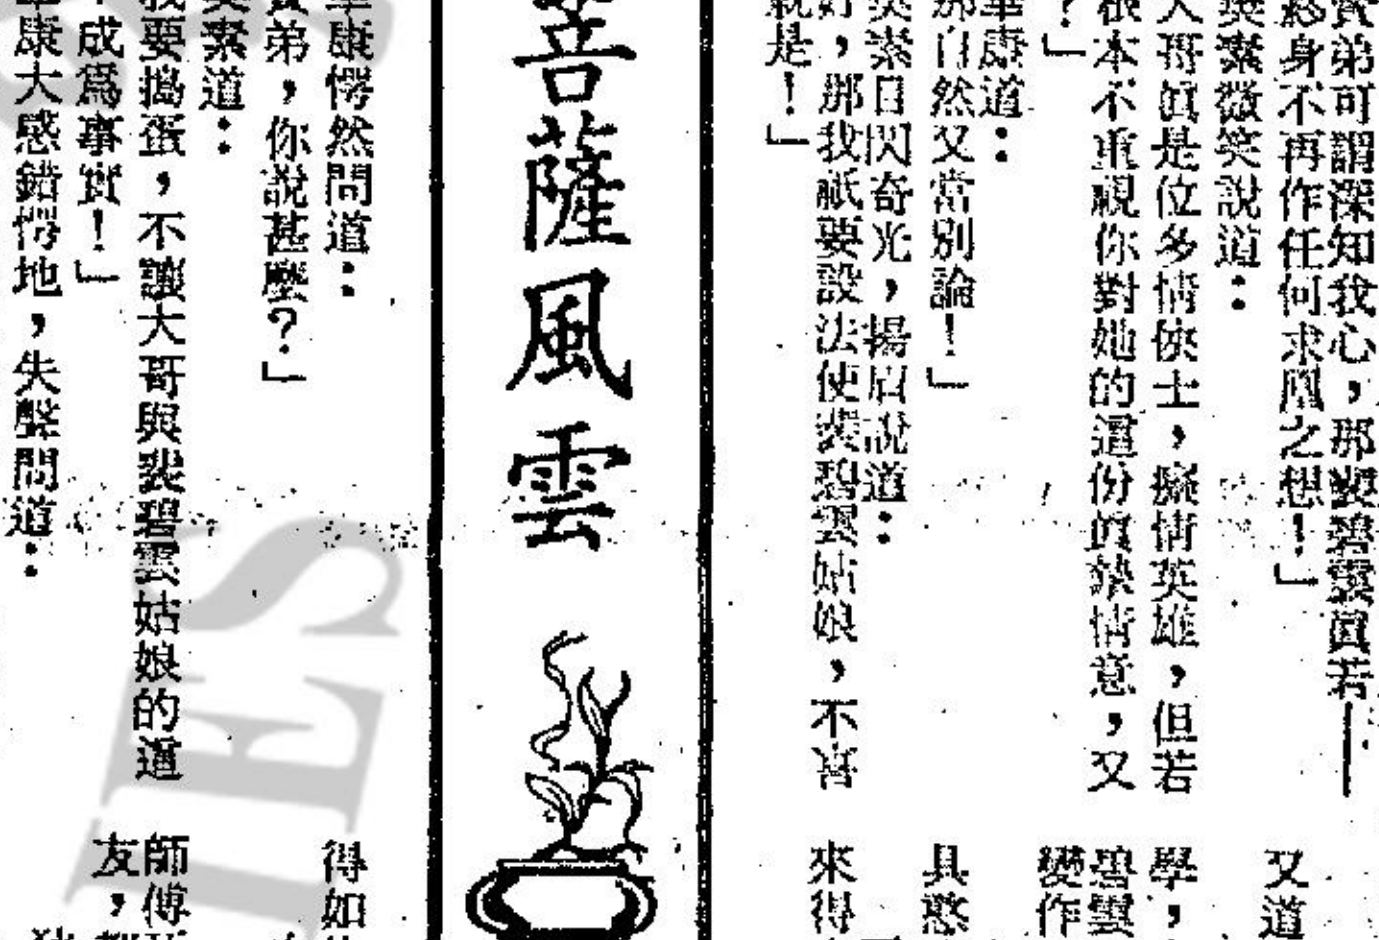 賢弟可謂深知我心，那裴碧雲眞若——
終身不再作任何求凰之想！」
奕素微笑說道：
大哥眞是位多情俠士，癡情英雄，但若
根本不重視你對她的這份眞摯情意，又
？」
華康道：
那自然又當別論！」
奕素目閃奇光，揚眉說道：
好，那我祇要設法使裴碧雲姑娘，不喜
就是！」
又道
學，
碧雲
變作
具憨
來得
菩薩風雲
華康愕然問道：
賢弟，你說甚麼？」
奕素道：
我要搗蛋，不讓大哥與裴碧雲姑娘的這
成爲事實！」
華康大感錯愕地，失聲問道：
得如
師傅
友，